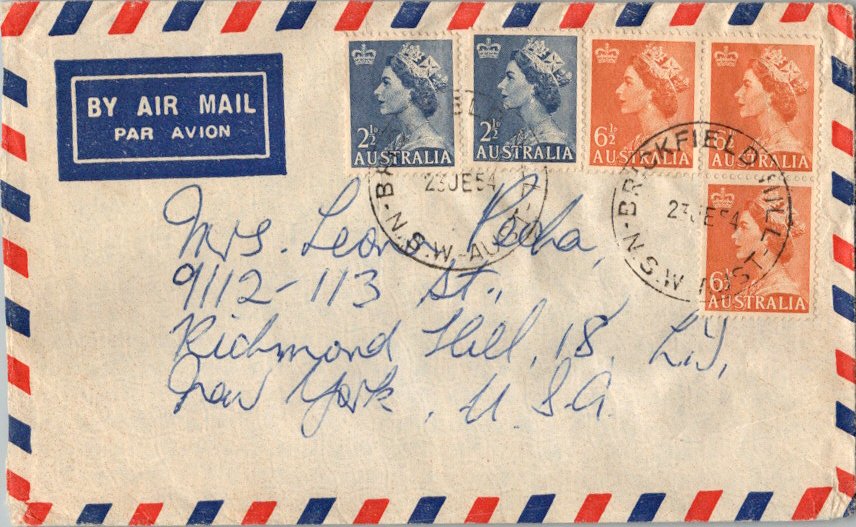 BY AIR MAIL
PAR AVION
2½
AUSTRALIA
2½
AUSTRALIA
6½
AUSTRALIA
6½
AUSTRALIA
6½
AUSTRALIA
23 JE 54
N.S.W. AUST
BRICKFIELD HILL
23 JE 54
N.S.W. AUST
Mrs. Leon
9112-113 St.,
Richmond Hill, 18, L.I,
New York, U.S.A.